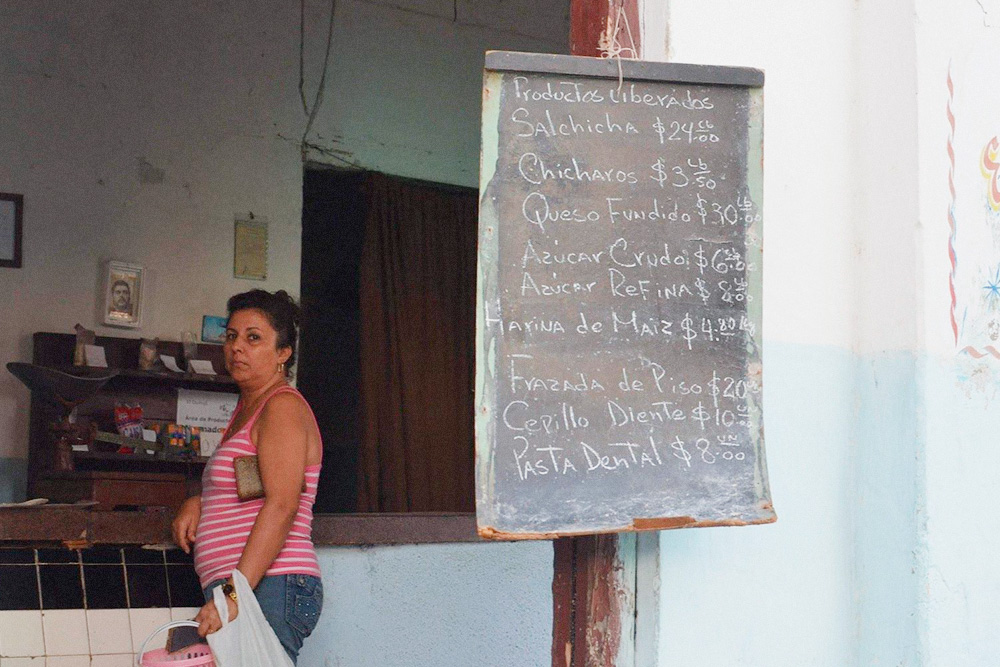 Productos Liberados
Salchicha $24.00 Lb
Chicharos $3.50 Lb
Queso Fundido $30.00 Lb
Azúcar Crudo $6.00 Lb
Azúcar Refina $8.00 Lb
Harina de Maiz $4.80 Lb
Frazada de Piso $20
Cepillo Diente $10.00
Pasta Dental $8.00 UN
Area de Product